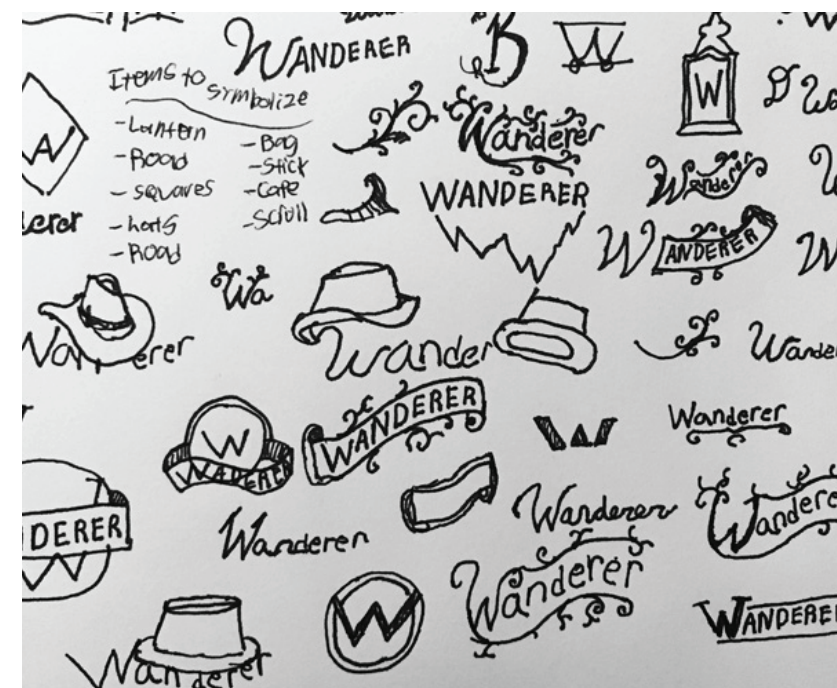 WANDERER
B
W
W
Items to
symbolize
-Lantern
-Road
-squares
-hats
-Road
-Bag
-Stick
-Cape
-Scroll
Wanderer
W
Wanderer
WANDERER
WANDERER
erer
Wa
Wan erer
Wander
Wande
W
WADERER
WANDERER
W
Wanderer
DERER
W
Wanderer
Wanderer
Wandere
Wanderer
W
WANDERER
Wanderer